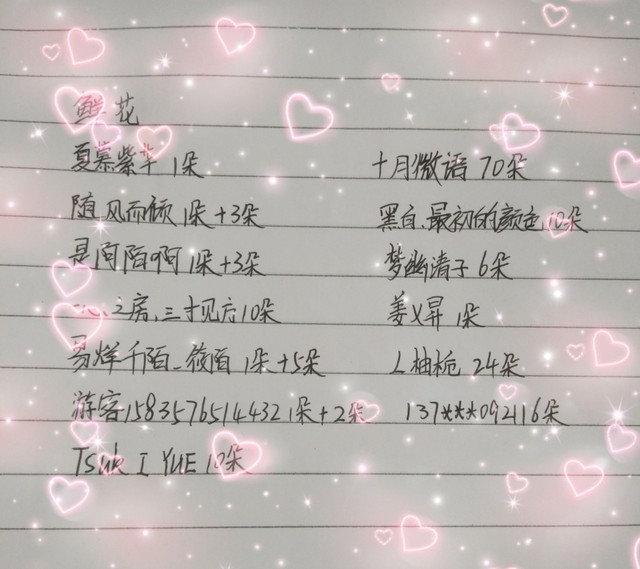 鲜花
夏慕紫华 1朵
十月微语 70朵
随风而倾 1朵+3朵
黑白、最初的颜色 10朵
是阿陌啊 1朵+3朵
梦幽清子 6朵
之房,三寸见方10朵
姜乂昇 1朵
易烊千陌_筱陌 1朵+5朵
L柚栀 24朵
游客1583576514432 1朵+2朵
137***0921 16朵
Tsuk I YUE 10朵